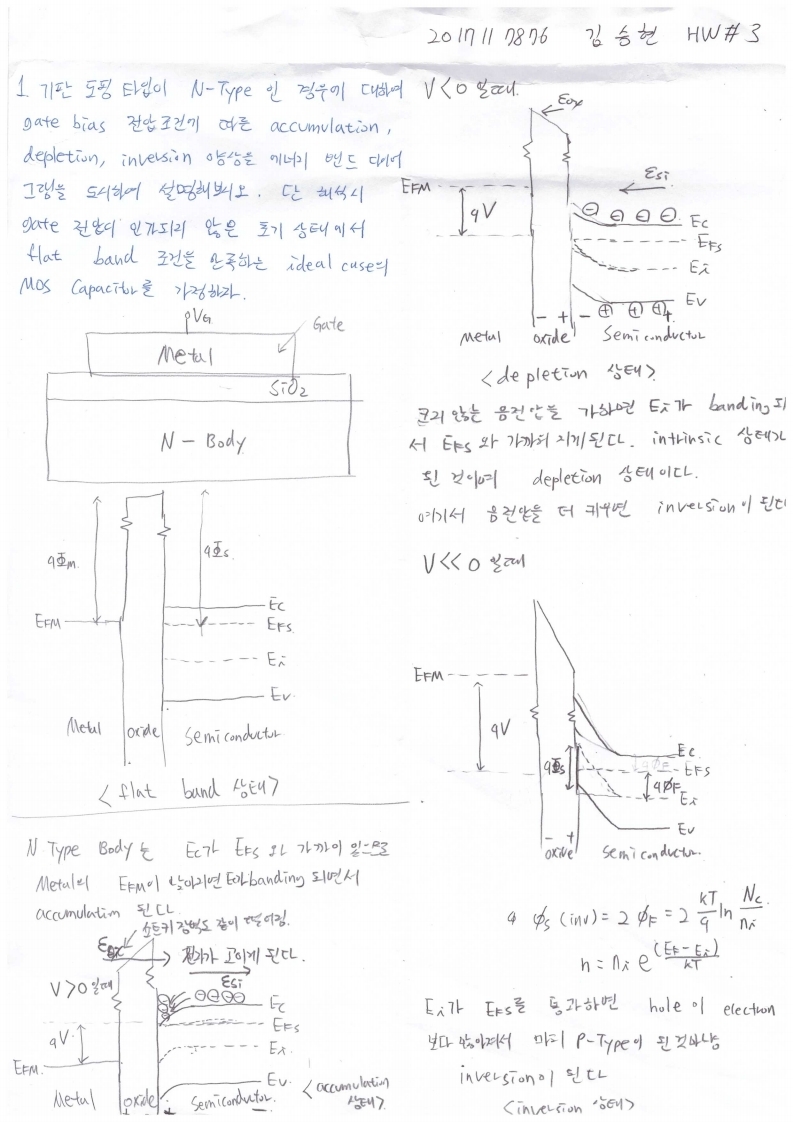 2017117876 김승현 HW#3
1. 기판 도핑 타입이 N-Type 인 경우에 대하여
gate bias 전압조건에 따른 accumulation,
depletion, inversion 양상을 에너지 밴드 다이어
그램을 도시하여 설명해보시오. 단 해석시
gate 전압이 인가되지 않은 초기 상태에서
flat band 조건을 만족하는 ideal case의
MOS Capacitor를 가정하라.
VG
Gate
Metal
SiO2
N - Body
qΦm
qΦs
EFM
Ec
EFs
Ei
Ev
Metal oxide Semiconductor
<flat band 상태>
N Type Body는 Ec가 EFs와 가까이 있으므로
Metal의 EFM이 낮아지면 banding 되면서
accumulation 된다.
Eox
전자가 고이게 된다.
V>0 일때
Esi
Ec
EFs
qV
Ei
EFM
Ev
Metal oxide Semiconductor
<accumulation 상태>
V<0 일때
Eox
EFM
Esi
qV
Ec
EFs
Ei
Ev
- + -
Metal oxide Semiconductor
<depletion 상태>
크지 않는 음전압을 가하면 Ei가 banding되
서 EFs와 가까워 지게된다. intrinsic 상태가
된 것이며 depletion 상태이다.
여기서 음전압을 더 키우면 inversion이 된다
V<<0 일때
EFM
qV
Ec
EFs
qΦs
qφF
Ei
Ev
- +
oxide Semiconductor
φs (inv) = 2 φF = 2 kT/q ln Nc/ni
n = ni e^(EF-Ei)/kT
Ei가 EFs를 통과하면 hole이 electron
보다 많아져서 마치 P-Type이 된것마냥
inversion이 된다
<inversion 상태>